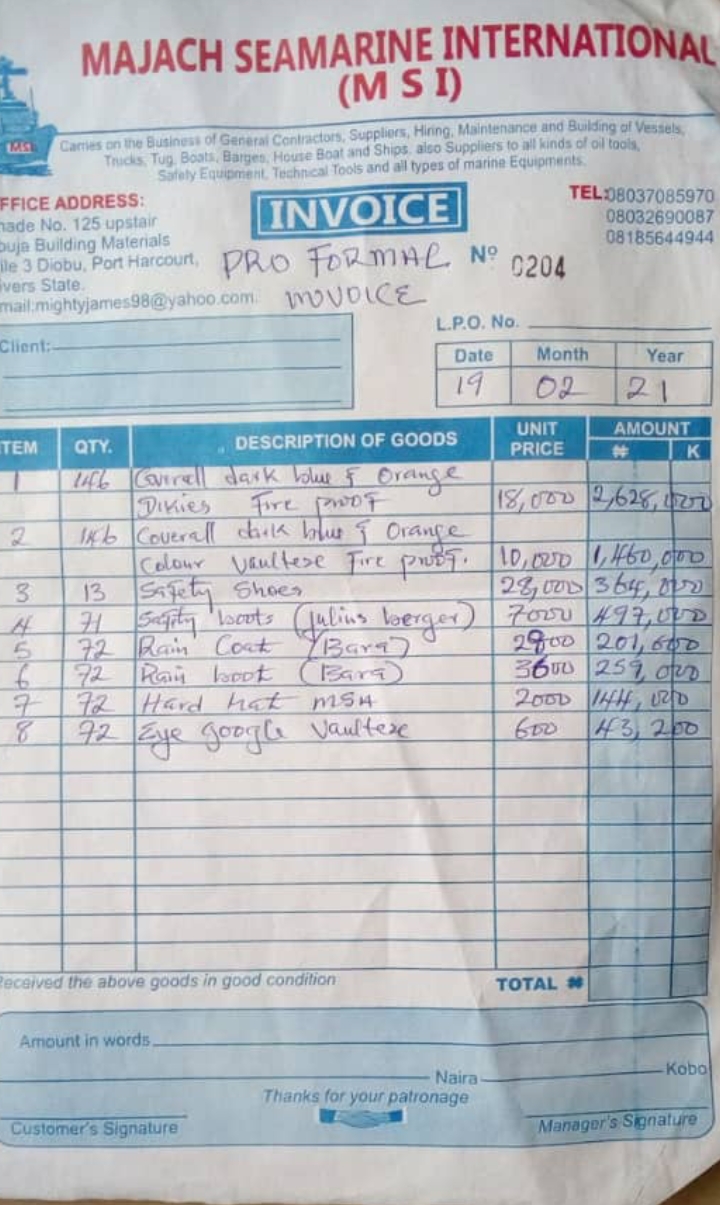 MAJACH SEAMARINE INTERNATIONAL
(M S I)
MSI
Carries on the Business of General Contractors, Suppliers, Hiring, Maintenance and Building of Vessels,
Trucks, Tug, Boats, Barges, House Boat and Ships. also Suppliers to all kinds of oil tools,
Safety Equipment, Technical Tools and all types of marine Equipments.
FFICE ADDRESS:
hade No. 125 upstair
buja Building Materials
ile 3 Diobu, Port Harcourt,
vers State.
mail:mightyjames98@yahoo.com
INVOICE
PRO FORMAL
INVOICE
Nº 0204
TEL:08037085970
08032690087
08185644944
L.P.O. No.
Client:
Date Month Year
19 02 21
TEM QTY. DESCRIPTION OF GOODS UNIT PRICE AMOUNT
₦ K
1 146 Coverall dark blue & Orange
Dikies Fire proof 18,000 2,628,000
2 146 Coverall dark blue & Orange
Colour Vaultese Fire proof. 10,000 1,460,000
3 13 Safety Shoes 28,000 364,000
4 71 Safity boots (Julius berger) 7000 497,000
5 72 Rain Coat (Bara) 2800 201,600
6 72 Rain boot (Bara) 3600 259,000
7 72 Hard hat MSA 2000 144,000
8 72 Eye google Vaultese 600 43,200
eceived the above goods in good condition
TOTAL ₦
Amount in words
Naira Kobo
Thanks for your patronage
Customer's Signature
Manager's Signature